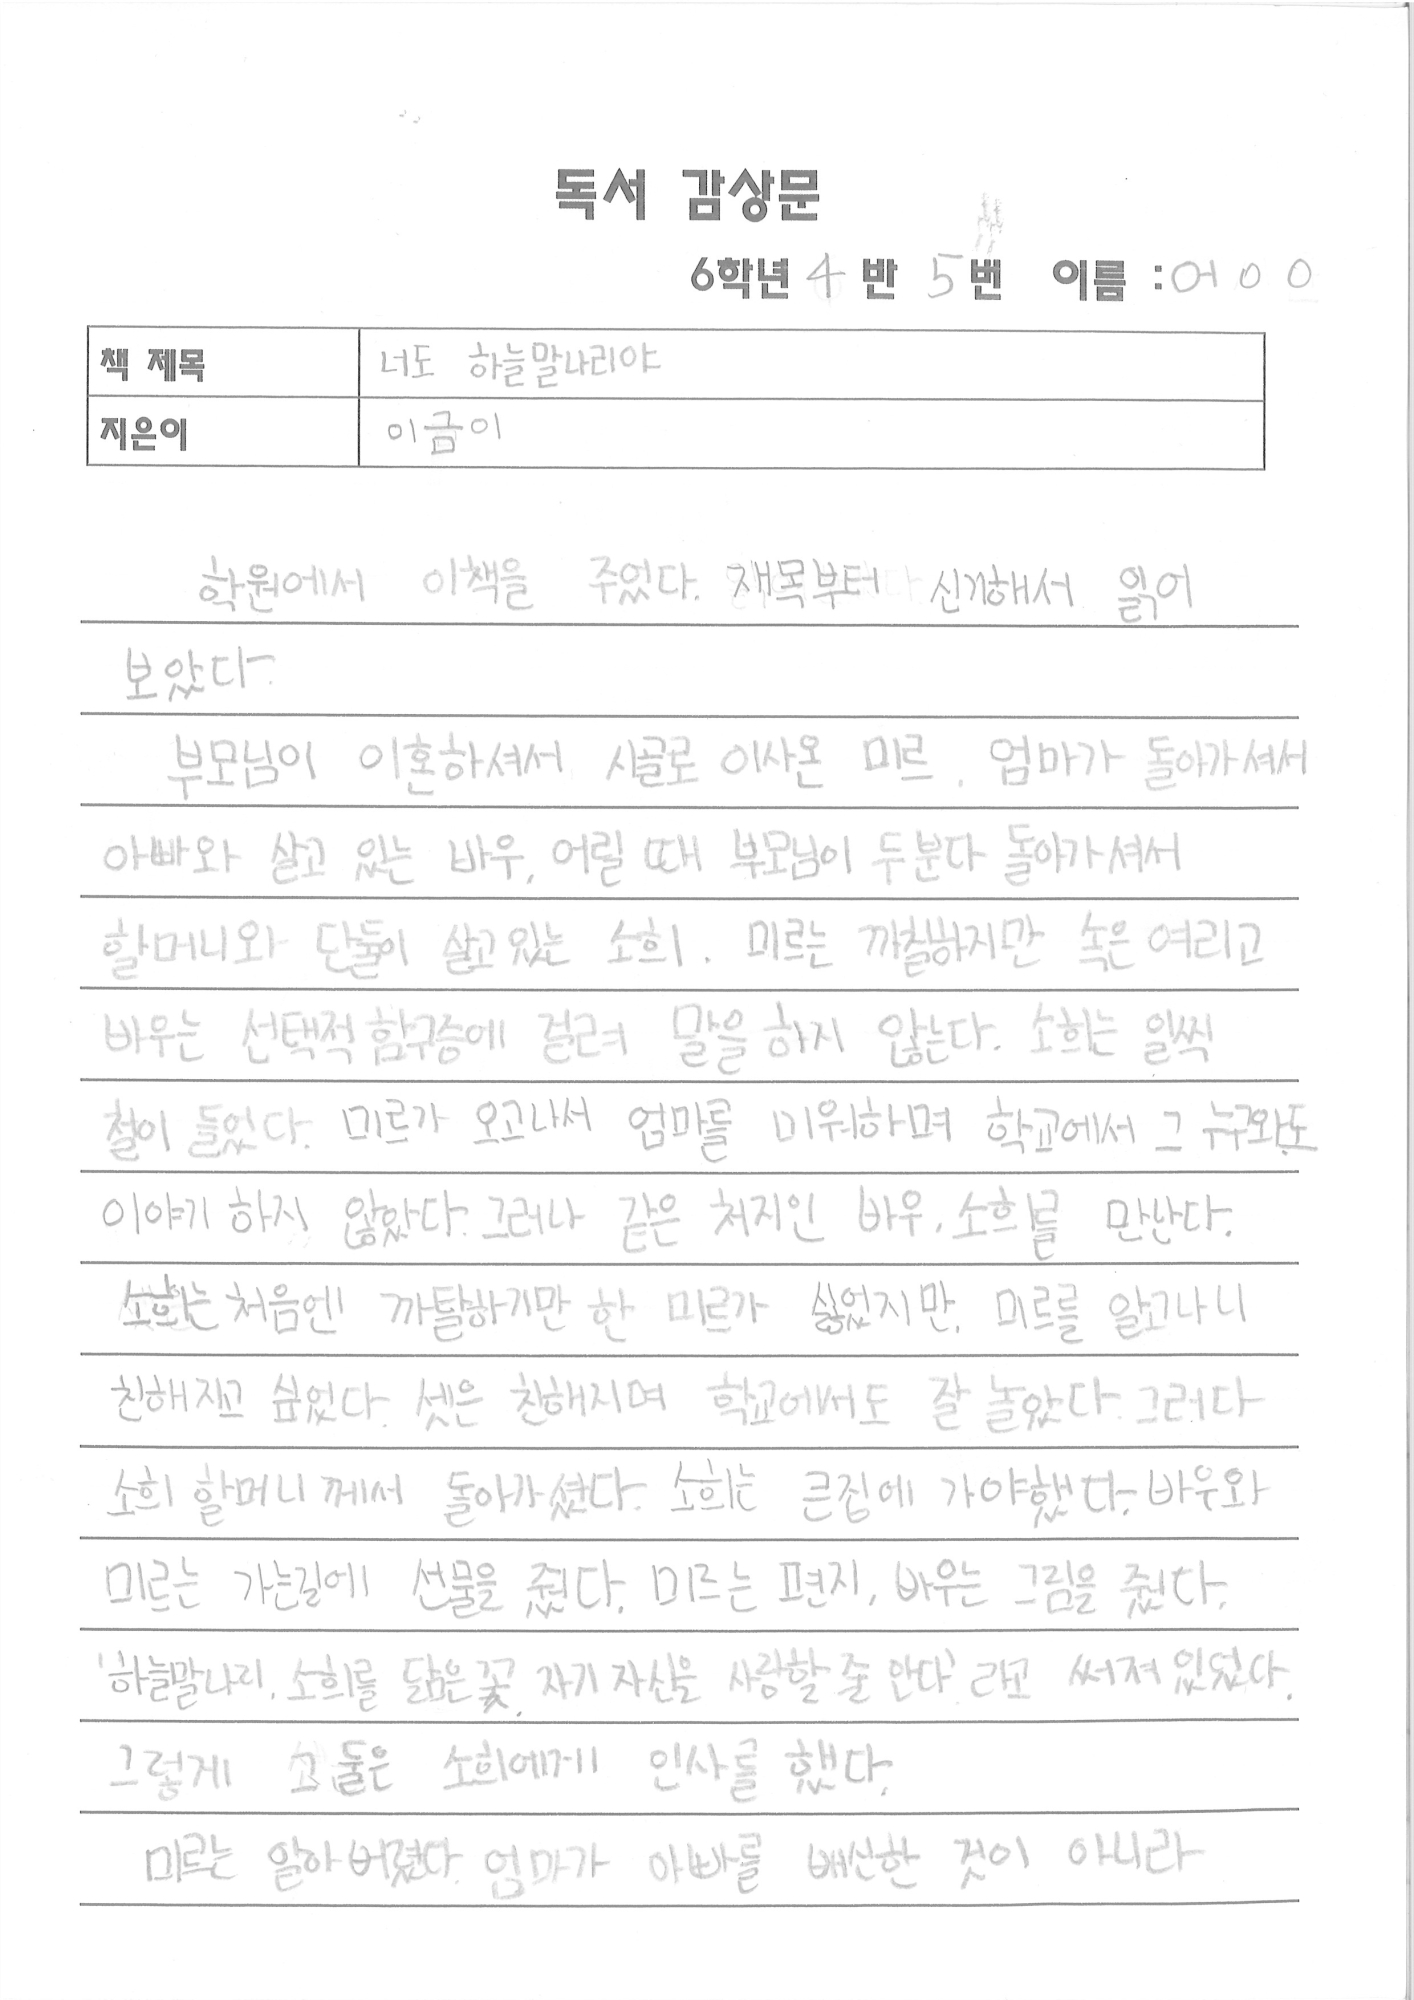 독서 감상문
6학년 4 반 5 번 이름 : 어 O O
책 제목 너도 하늘말나리야
지은이 이금이
학원에서 이책을 주었다. 재목부터 신기해서 읽어
보았다.
부모님이 이혼하셔서 시골로 이사온 미르, 엄마가 돌아가셔서
아빠와 살고 있는 바우, 어릴 때 부모님이 두분다 돌아가셔서
할머니와 단둘이 살고있는 소희. 미르는 까칠하지만 속은 여리고
바우는 선택적 함구증에 걸려 말을 하지 않는다. 소희는 일찍
철이 들었다. 미르가 오고나서 엄마를 미워하며 학교에서 그 누구와도
이야기 하지 않았다. 그러나 같은 처지인 바우, 소희를 만난다.
소희는 처음엔 까탈하기만 한 미르가 싫었지만, 미르를 알고나니
친해지고 싶었다. 셋은 친해지며 학교에서도 잘 놀았다. 그러다
소희 할머니께서 돌아가셨다. 소희는 큰집에 가야했다. 바우와
미르는 가는길에 선물을 줬다. 미르는 편지, 바우는 그림을 줬다.
'하늘말나리, 소희를 닮은 꽃, 자기 자신을 사랑할 줄 안다' 라고 써져 있었다.
그렇게 그 둘은 소희에게 인사를 했다.
미르는 알아 버렸다. 엄마가 아빠를 배신한 것이 아니라